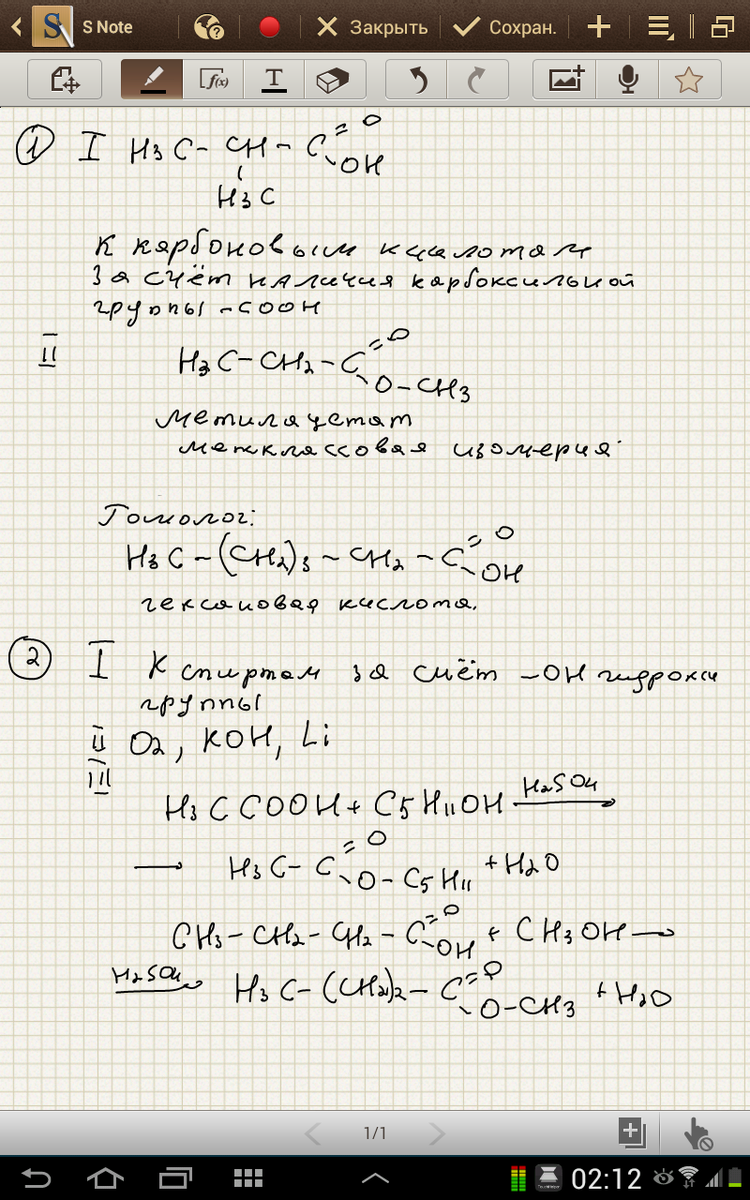 S Note
Закрыть
Сохран.
f(x)
T
1 I H3C - CH - C = O
OH
H3C
К карбоновым кислотам
за счёт наличия карбоксильной
группы -COOH
II H3C - CH2 - C = O
O - CH3
метилацетат
межклассовая изомерия.
Гомолог:
H3C - (CH2)3 - CH2 - C = O
OH
гексановая кислота.
2 I К спиртам за счёт -OH гидрокси
группы
II O2, KOH, Li
III
H3CCOOH + C5H11OH H2SO4 →
→ H3C - C = O
O - C5H11 + H2O
CH3 - CH2 - CH2 - C = O
OH + CH3OH →
H2SO4 → H3C - (CH2)2 - C = O
O - CH3 + H2O
1/1
02:12